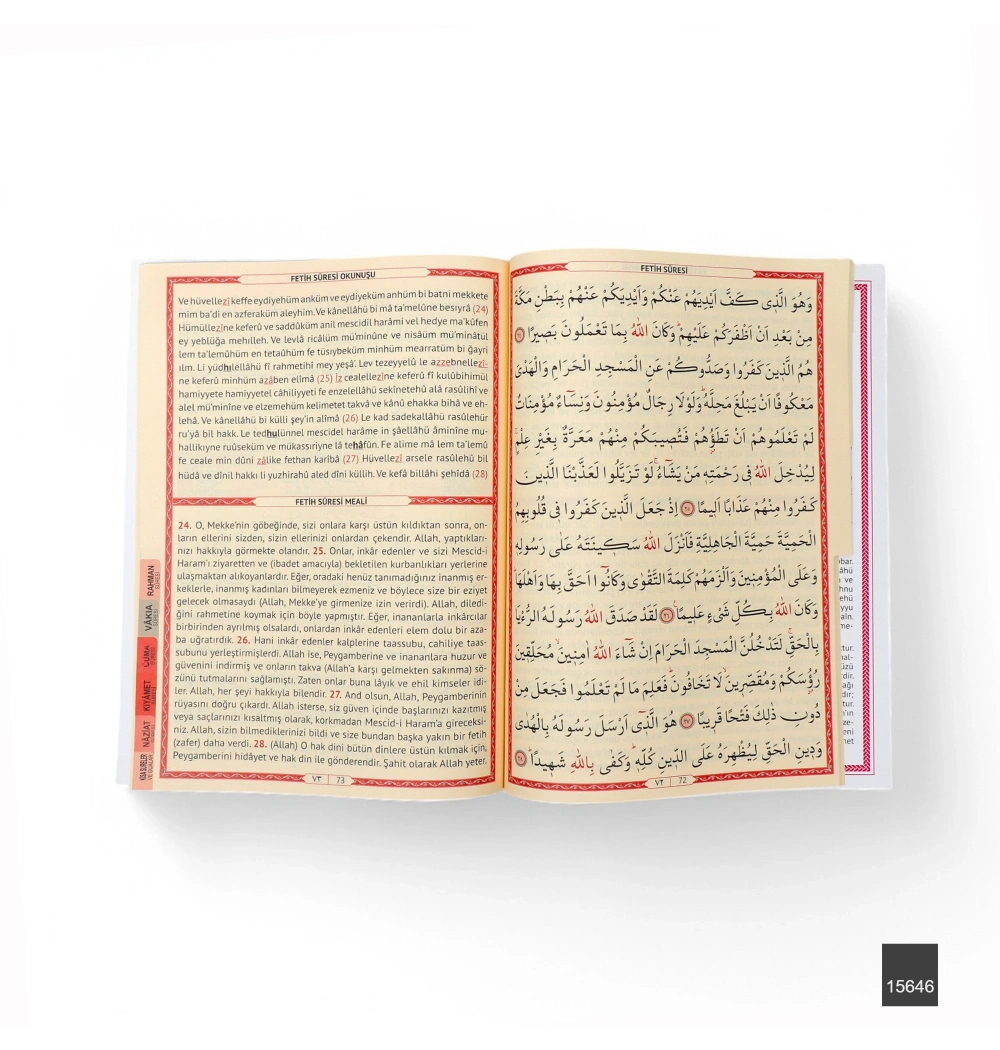 FETİH SÛRESİ OKUNUŞU
Ve hüvellezî keffe eydiyehüm anküm ve eydiyeküm anhüm bi batni mekkete
mim ba'di en azferaküm aleyhim. Ve kânellâhü bi mâ ta'melûne besıyrâ (24)
Hümüllezîne keferû ve saddûküm anil mescidil harâmi vel hedye ma'kûfen
ey yeblüğa mehılleh. Ve levlâ ricâlüm mü'minûne ve nisâüm mü'minâtül
lem ta'lemûhüm en tetaûhüm fe tüsıybeküm minhüm mearratüm bi ğayri
ılm. Li yüdhılellâhü fî rahmetihî mey yeşâ'. Lev tezeyyelû le azzebnellezî-
ne keferû minhüm azâben elîmâ (25) İz cealellezîne keferû fî kulûbihimül
hamiyyete hamiyyetel câhiliyyeti fe enzelellâhü sekînetehû alâ rasûlihî ve
alel mü'minîne ve elzemehüm kelimetet takvâ ve kânû ehakka bihâ ve eh-
lehâ. Ve kânellâhü bi külli şey'in alîmâ (26) Le kad sadekallâhü rasûlehür
ru'yâ bil hakk. Le tedhulünnel mescidel harâme in şâellâhü âminîne mu-
hallikıyne ruûseküm ve mükassıriyne lâ tehâfûn. Fe alime mâ lem ta'lemû
fe ceale min dûni zâlike fethan karîbâ (27) Hüvellezî arsele rasûlehû bil
hüdâ ve dînil hakkı li yuzhirahû aled dîni küllih. Ve kefâ billâhi şehîdâ (28)
FETİH SÛRESİ MEALİ
24. O, Mekke'nin göbeğinde, sizi onlara karşı üstün kıldıktan sonra, on-
ların ellerini sizden, sizin ellerinizi onlardan çekendir. Allah, yaptıkları-
nızı hakkıyla görmekte olandır. 25. Onlar, inkâr edenler ve sizi Mescid-i
Haram'ı ziyaretten ve (ibadet amacıyla) bekletilen kurbanlıkları yerlerine
ulaşmaktan alıkoyanlardır. Eğer, oradaki henüz tanımadığınız inanmış er-
keklerle, inanmış kadınları bilmeyerek ezmeniz ve böylece size bir eziyet
gelecek olmasaydı (Allah, Mekke'ye girmenize izin verirdi). Allah, diledi-
ğini rahmetine koymak için böyle yapmıştır. Eğer, inananlarla inkârcılar
birbirinden ayrılmış olsalardı, onlardan inkâr edenleri elem dolu bir aza-
ba uğratırdık. 26. Hani inkâr edenler kalplerine taassubu, cahiliye taas-
subunu yerleştirmişlerdi. Allah ise, Peygamberine ve inananlara huzur ve
güvenini indirmiş ve onların takva (Allah'a karşı gelmekten sakınma) sö-
zünü tutmalarını sağlamıştı. Zaten onlar buna lâyık ve ehil kimseler idi-
ler. Allah, her şeyi hakkıyla bilendir. 27. And olsun, Allah, Peygamberinin
rüyasını doğru çıkardı. Allah isterse, siz güven içinde başlarınızı kazıtmış
veya saçlarınızı kısaltmış olarak, korkmadan Mescid-i Haram'a gireceksi-
niz. Allah, sizin bilmediklerinizi bildi ve size bundan başka yakın bir fetih
(zafer) daha verdi. 28. (Allah) O hak dini bütün dinlere üstün kılmak için,
Peygamberini hidâyet ve hak din ile gönderendir. Şahit olarak Allah yeter.
٧٣ 73
RAHMAN SÛRESİ
VÂKIA SÛRESİ
CUMA
KIYÂMET
NÂZİAT
KISA SÛRELER
FETİH SÛRESİ
وَهُوَ الَّذٖي كَفَّ اَيْدِيَهُمْ عَنْكُمْ وَاَيْدِيَكُمْ عَنْهُمْ بِبَطْنِ مَكَّةَ
مِنْ بَعْدِ اَنْ اَظْفَرَكُمْ عَلَيْهِمْؕ وَكَانَ اللّٰهُ بِمَا تَعْمَلُونَ بَصٖيرًا ﴿٢٤﴾
هُمُ الَّذٖينَ كَفَرُوا وَصَدُّوكُمْ عَنِ الْمَسْجِدِ الْحَرَامِ وَالْهَدْيَ
مَعْكُوفًا اَنْ يَبْلُغَ مَحِلَّهُؕ وَلَوْلَا رِجَالٌ مُؤْمِنُونَ وَنِسَٓاءٌ مُؤْمِنَاتٌ
لَمْ تَعْلَمُوهُمْ اَنْ تَطَؤُ۫هُمْ فَتُصٖيبَكُمْ مِنْهُمْ مَعَرَّةٌ بِغَيْرِ عِلْمٍۚ
لِيُدْخِلَ اللّٰهُ فٖي رَحْمَتِهٖ مَنْ يَشَٓاءُۚ لَوْ تَزَيَّلُوا لَعَذَّبْنَا الَّذٖينَ
كَفَرُوا مِنْهُمْ عَذَابًا اَلٖيمًا ﴿٢٥﴾ اِذْ جَعَلَ الَّذٖينَ كَفَرُوا فٖي قُلُوبِهِمُ
الْحَمِيَّةَ حَمِيَّةَ الْجَاهِلِيَّةِ فَاَنْزَلَ اللّٰهُ سَكٖينَتَهُ عَلٰى رَسُولِهٖ
وَعَلَى الْمُؤْمِنٖينَ وَاَلْزَمَهُمْ كَلِمَةَ التَّقْوٰى وَكَانُٓوا اَحَقَّ بِهَا وَاَهْلَهَاؕ
وَكَانَ اللّٰهُ بِكُلِّ شَيْءٍ عَلٖيمًا ﴿٢٦﴾ لَقَدْ صَدَقَ اللّٰهُ رَسُولَهُ الرُّءْيَا
بِالْحَقِّۚ لَتَدْخُلُنَّ الْمَسْجِدَ الْحَرَامَ اِنْ شَٓاءَ اللّٰهُ اٰمِنٖينَۙ مُحَلِّقٖينَ
رُؤُ۫سَكُمْ وَمُقَصِّرٖينَۙ لَا تَخَافُونَؕ فَعَلِمَ مَا لَمْ تَعْلَمُوا فَجَعَلَ مِنْ
دُونِ ذٰلِكَ فَتْحًا قَرٖيبًا ﴿٢٧﴾ هُوَ الَّذٖٓي اَرْسَلَ رَسُولَهُ بِالْهُدٰى
وَدٖينِ الْحَقِّ لِيُظْهِرَهُ عَلَى الدّٖينِ كُلِّهٖؕ وَكَفٰى بِاللّٰهِ شَهٖيدًاؕ ﴿٢٨﴾
٧٢ 72
15646